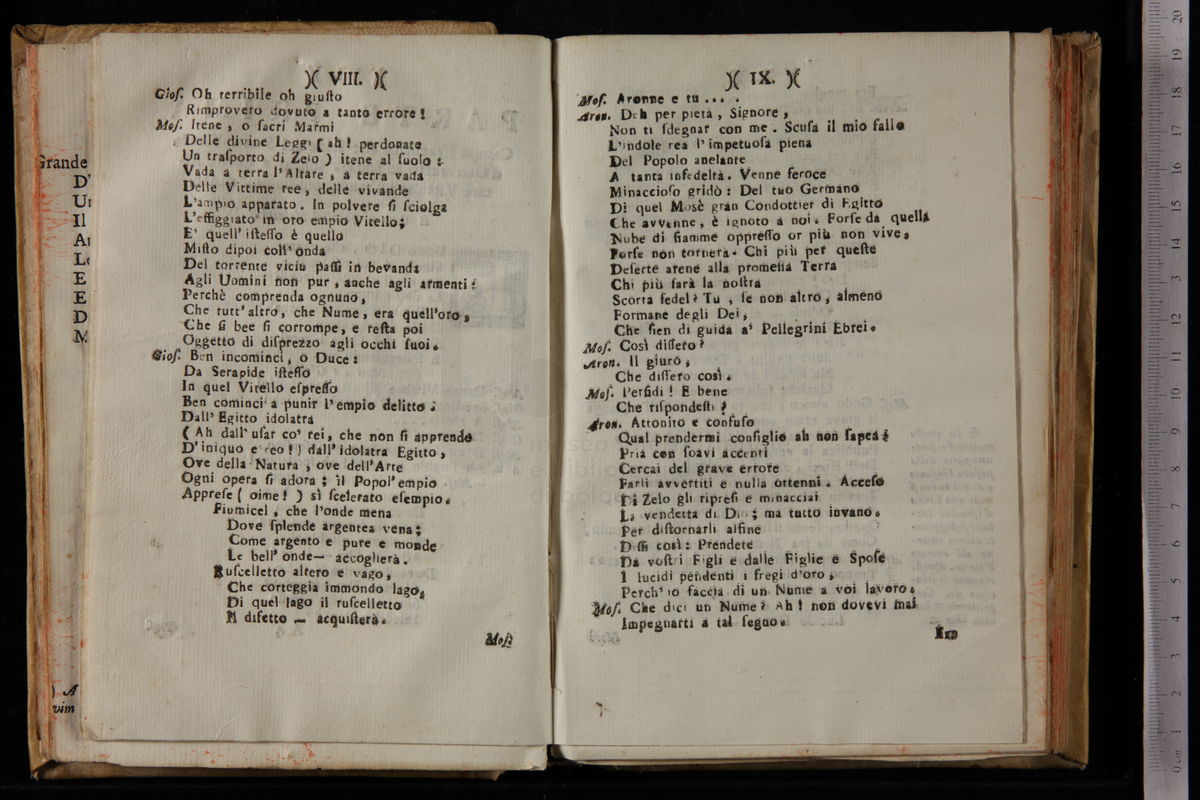 Grande
D'
Il
E
E
D
M
vim
)( VIII. )(
Giof. Oh terribile oh giuſto
Rimprovero dovuto a tanto errore!
Moſ. Itene, o ſacri Marmi
Delle divine Leggi ( ah! perdonate
Un traſporto di Zelo ) itene al ſuolo:
Vada a terra l'Altare, a terra vada
Delle Vittime ree, delle vivande
L'ampio apparato. In polvere ſi ſciolga
L'effiggiato in oro empio Vitello;
E' quell' iſteſſo è quello
Miſto dipoi coll' onda
Del torrente vicin paſſi in bevanda
Agli Uomini non pur, anche agli armenti:
Perchè comprenda ognuno,
Che tutt'altro, che Nume, era quell'oro,
Che ſi bee ſi corrompe, e reſta poi
Oggetto di diſprezzo agli occhi ſuoi.
Gioſ. Ben incominci, o Duce:
Da Serapide iſteſſo
In quel Vitello eſpreſſo
Ben cominci a punir l'empio delitto:
Dall' Egitto idolatra
( Ah dall' uſar co' rei, che non ſi apprende
D'iniquo e reo! ) dall'idolatra Egitto,
Ove della Natura, ove dell'Arte
Ogni opera ſi adora; il Popol'empio
Appreſe ( oime! ) sì ſcelerato eſempio.
Fiumicel, che l'onde mena
Dove ſplende argentea vena;
Come argento e pure e monde
Le bell' onde— accoglierà.
Ruſcelletto altero e vago,
Che corteggia immondo lago,
Di quel lago il ruſcelletto
Il difetto — acquiſterà.
Mosè
)( IX. )(
Moſ. Aronne e tu ... .
Aron. Deh per pietà, Signore,
Non ti ſdegnar con me. Scuſa il mio fallo
L'indole rea l'impetuoſa piena
Del Popolo anelante
A tanta infedeltà. Venne feroce
Minaccioſo gridò: Del tuo Germano
Di quel Mosè gran Condottier di Egitto
Che avvenne, è ignoto a noi. Forſe da quella
Nube di fiamme oppreſſo or più non vive,
Forſe non tornerà. Chi più per queſte
Deſerte arene alla promeſſa Terra
Chi più ſarà la noſtra
Scorta fedel? Tu, ſe non altro, almeno
Formane degli Dei,
Che ſien di guida a' Pellegrini Ebrei.
Moſ. Così diſſero?
Aron. Il giuro,
Che diſſero così.
Moſ. Perfidi! E bene
Che riſpondeſti?
Aron. Attonito e confuſo
Qual prendermi conſiglio ah non ſapea:
Pria con ſoavi accenti
Cercai del grave errore
Farli avvertiti e nulla ottenni. Acceſo
Di Zelo gli ripreſi e minacciai
La vendetta di Dio; ma tutto invano.
Per diſtornarli alfine
Diſſi così: Prendete
Da voſtri Figli e dalle Figlie e Spoſe
I lucidi pendenti i fregi d'oro,
Perch' io faccia di un Nume a voi lavoro.
Moſ. Che dici un Nume? Ah! non dovevi mai
Impegnarti a tal ſegno.